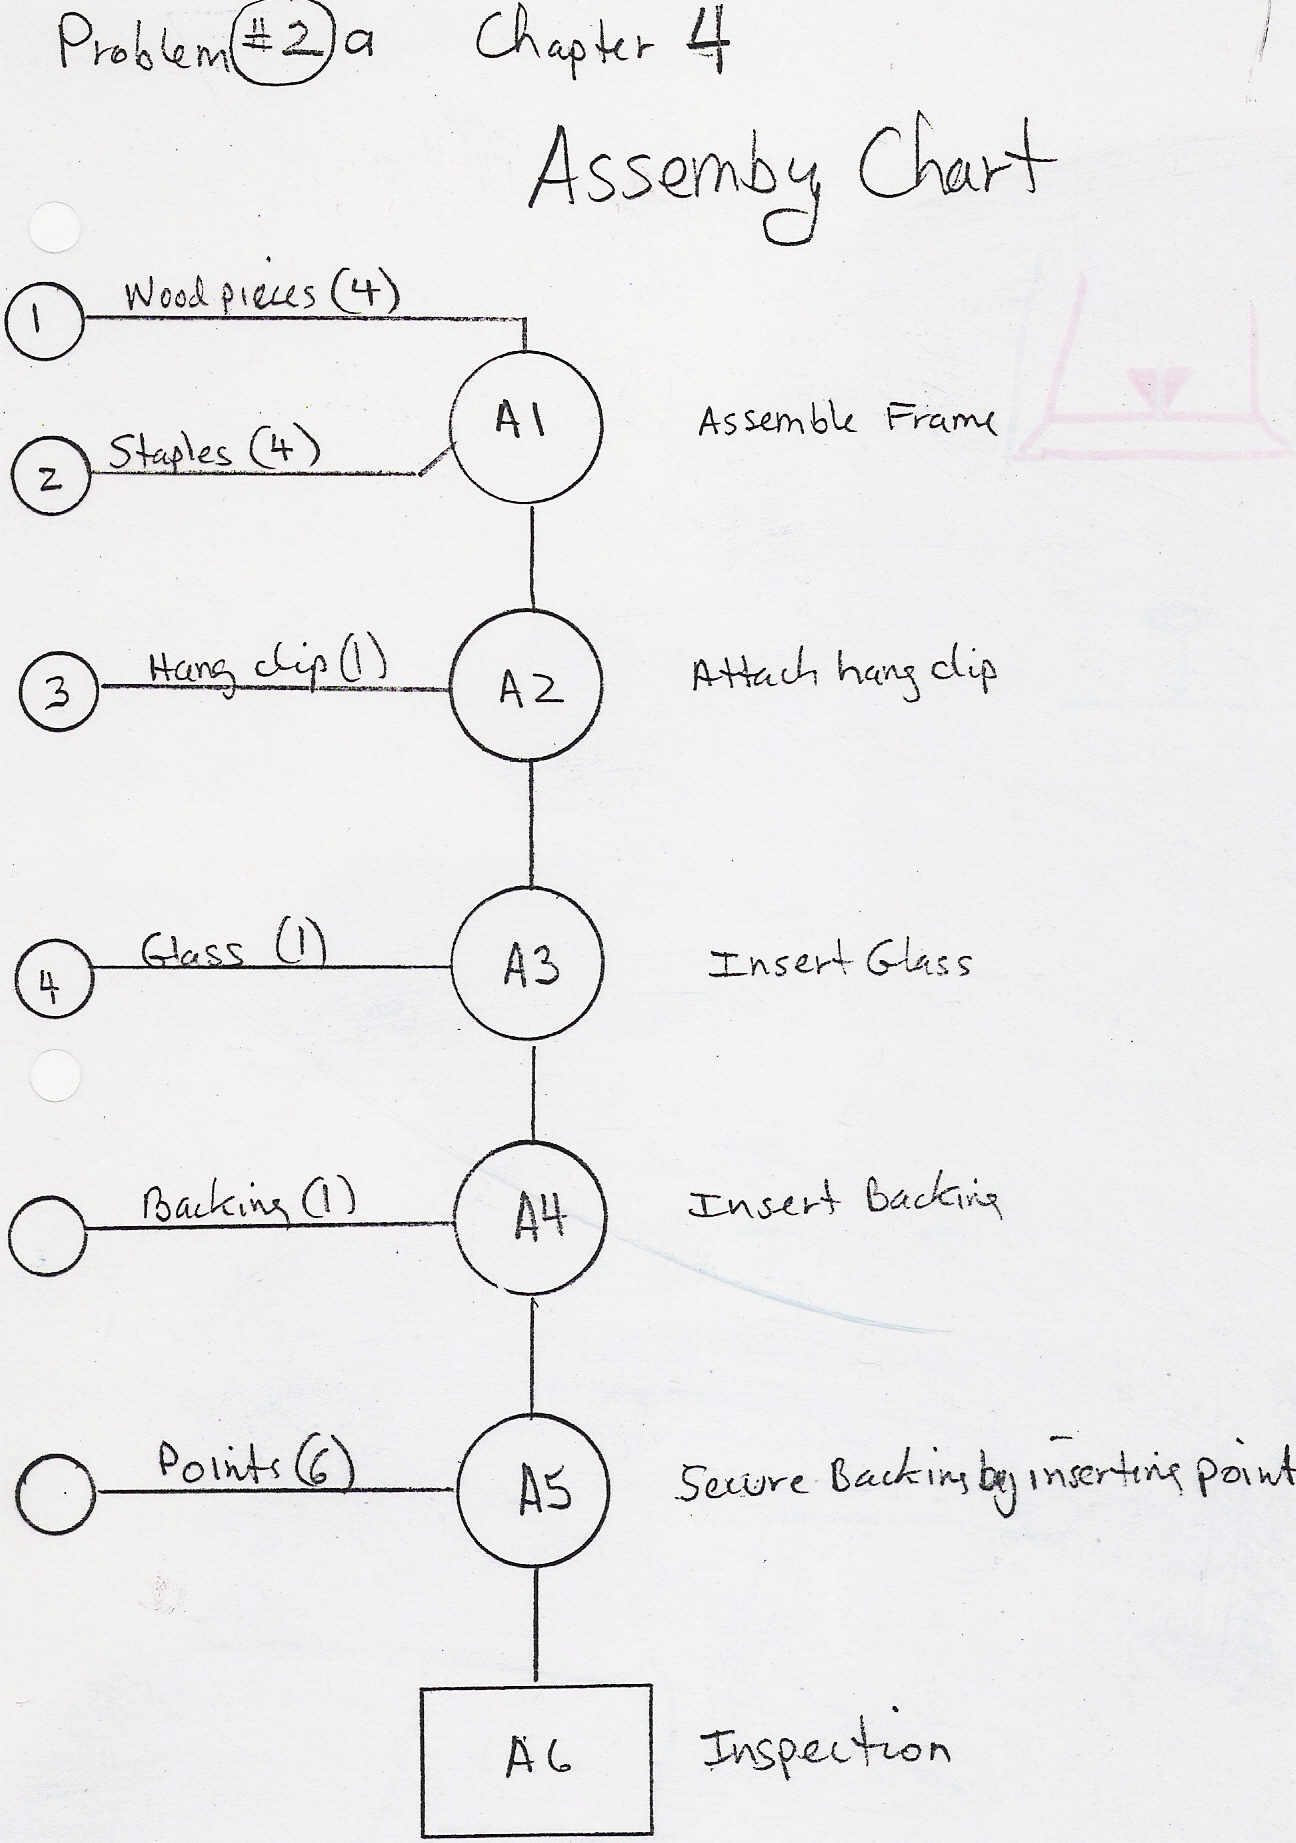 Problem #2 a Chapter 4
Assemby Chart
1 Wood pieces (4)
A1 Assemble Frame
2 Staples (4)
3 Hang clip (1) A2 Attach hang clip
4 Glass (1) A3 Insert Glass
Backing (1) A4 Insert Backing
Points (6) A5 Secure Backing by inserting point
A6 Inspection